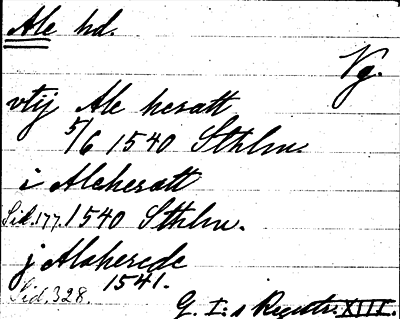 Ale hd.
Vg.
vtij Ale heratt
5/6 1540 Sthlm.
i Aleheratt
Sid. 177. 1540 Sthlm.
j Aleherede
1541.
Sid. 328.
G. I:s Registr. XIII.